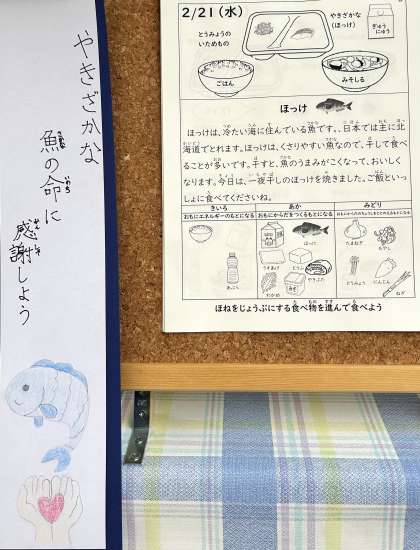 やきざかな
魚の命に
感謝しよう
2/21(水)
とうみょうの
いためもの
やきざかな
(ほっけ)
ぎゅう
にゅう
ごはん
みそしる
ほっけ
ほっけは、冷たい海に住んでいる魚です。日本では主に北
海道でとれます。ほっけは、くさりやすい魚なので、干して食べ
ることが多いです。干すと、魚のうまみがこくなって、おいしく
なります。今日は、一夜干しのほっけを焼きました。ご飯といっ
しょに食べてくださいね。
きいろ
おもにエネルギーのもとになる
あか
おもにからだをつくるもとになる
みどり
おもにからだのちょうしをととのえるもとになる
あぶら
ほっけ
とうふ
わかめ
みそ
たまねぎ
もやし
とうみょう
にんじん
ねぎ
ほねをじょうぶにする食べ物を進んで食べよう